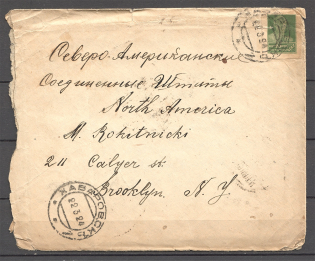 Северо-Американскі
Соединенные Штаты
North America
M. Rokitnicki
211 Calyer st.
Brooklyn. N. Y.
ХАБАРОВСКЪ
22 5 24